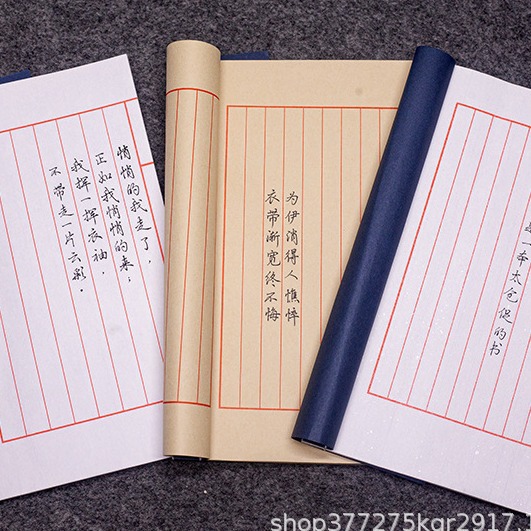 悄悄的我走了，
正如我悄悄的来；
我挥一挥衣袖，
不带走一片云彩。
为伊消得人憔悴
衣带渐宽终不悔
一本太仓促的书
shop377275kgr2917